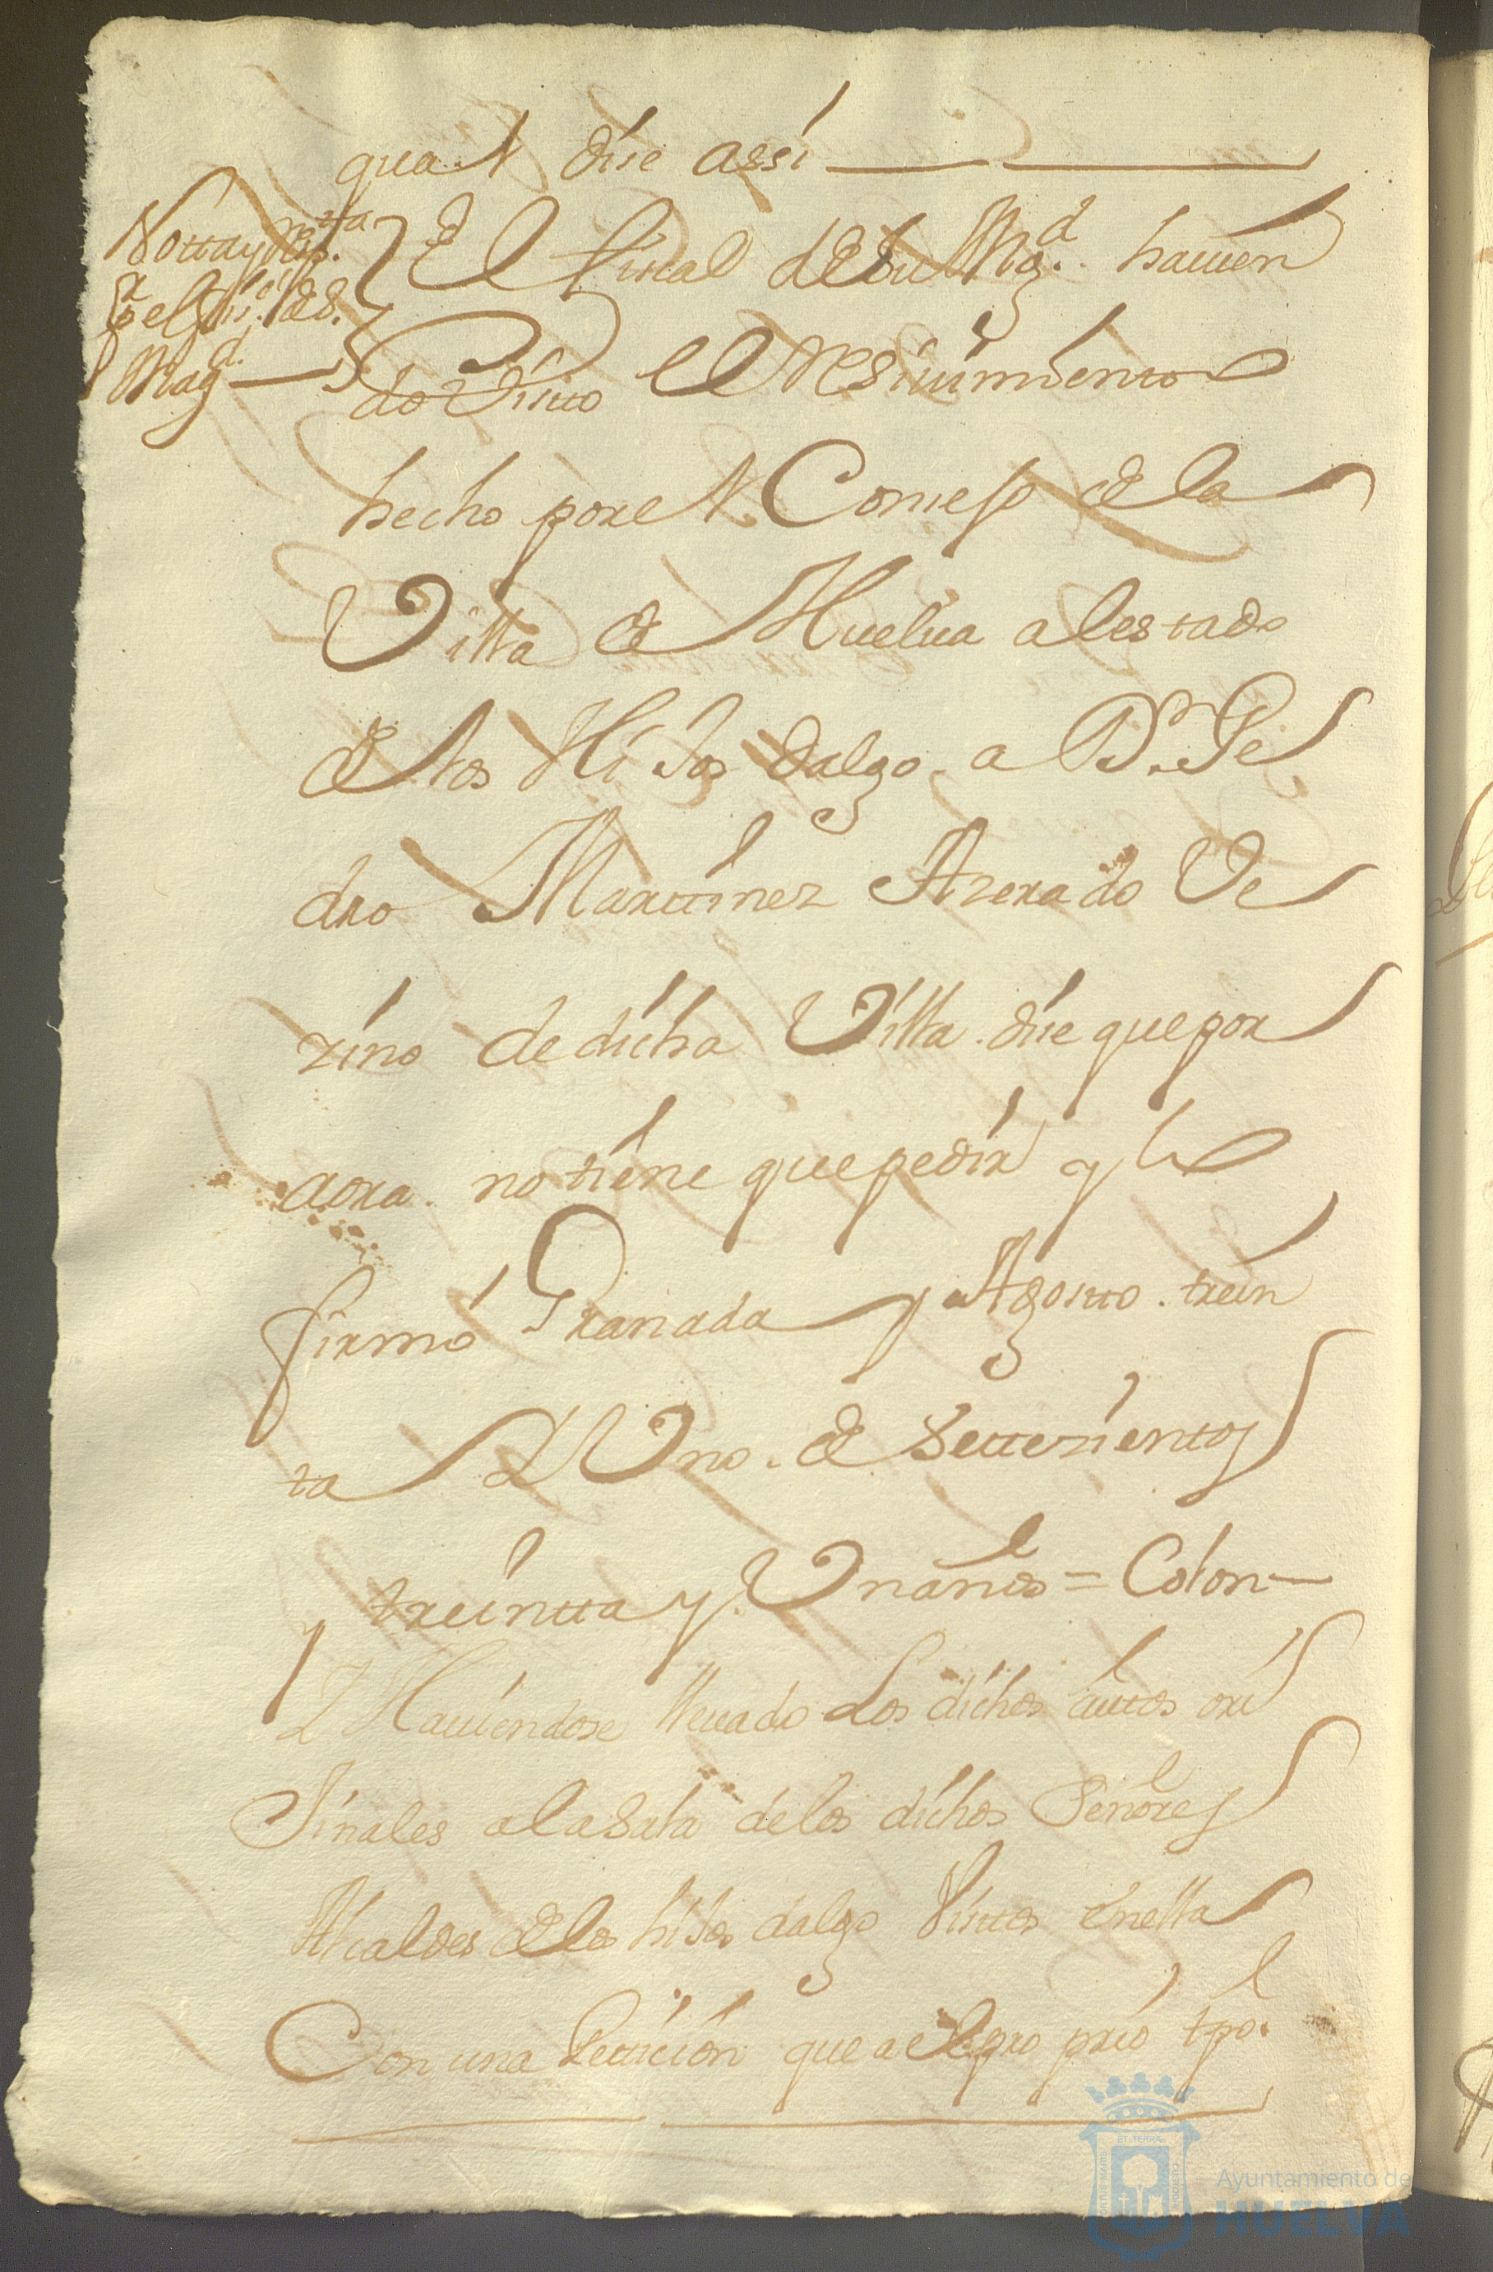 qual dize assi
Notta y Resp.ta
el fis.l de S.
Mag.d
El fiscal de su Mg.d havien
do Visto el resiuimiento
hecho por el Consejo de la
Villa de Huelua al estado
de los Hijos dalgo a D.n Pe
dro Marttinez Azerado Ve
zino de dicha Villa dize que por
aora no tiene que pedir y lo
firmó Granada y Agosto trein
ta y Uno de settezientos
y treintta y Un años = Colon
Y Hauiendose lleuado los dichos auttos ori
Jinales a la Sala de los dichos Señores
Alcaldes de los hijos dalgo Vistos en ella
Con una Petticion que a el pro prio tpo.
Ayuntamiento de
HUELVA